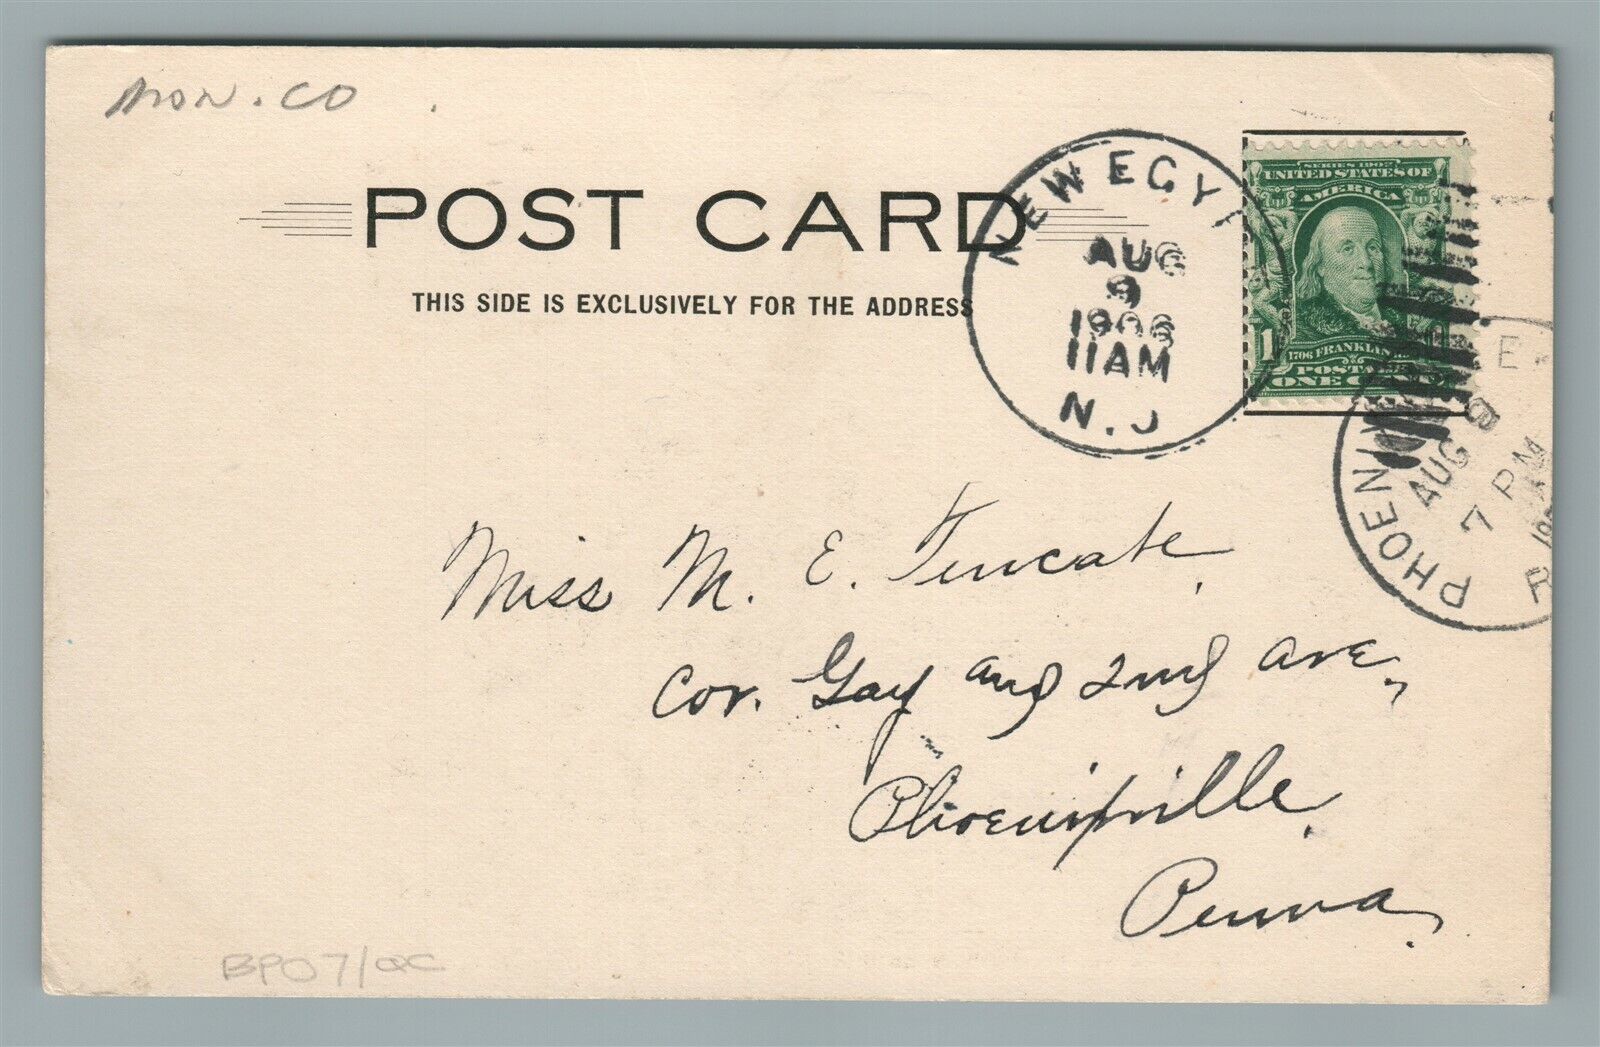 Mon. CO
POST CARD
THIS SIDE IS EXCLUSIVELY FOR THE ADDRESS
NEW EGYP
AUG
9
1906
11AM
N.J
SERIES 1902
UNITED STATES OF
AMERICA
1
1706 FRANKLIN
POSTAGE
ONE CENT
PHOENIX E.
AUG 9
7 PM
190
Miss M. E. Tencate.
Cor. Gay and 2nd Ave.,
Phoenixville.
Penna.
BP07/QC